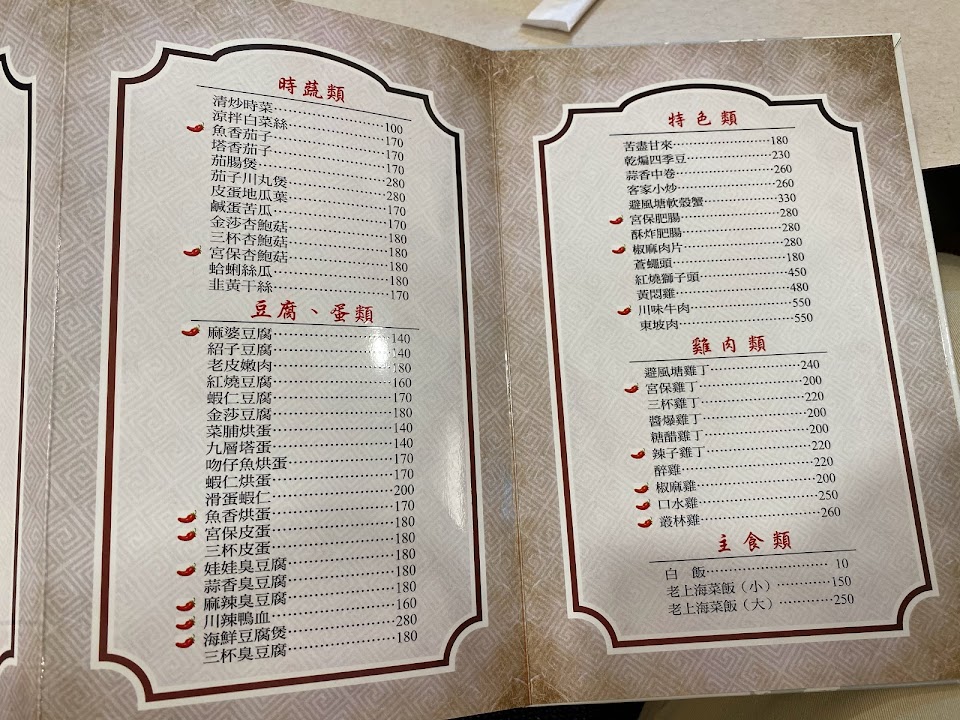 時蔬類
清炒時菜 100
涼拌白菜絲 170
魚香茄子 170
塔香茄子 170
茄腸煲 280
茄子川丸煲 280
皮蛋地瓜葉 170
鹹蛋苦瓜 170
金莎杏鮑菇 180
三杯杏鮑菇 180
宮保杏鮑菇 180
蛤蜊絲瓜 180
韭黃干絲 170
豆腐、蛋類
麻婆豆腐 140
紹子豆腐 140
老皮嫩肉 180
紅燒豆腐 160
蝦仁豆腐 170
金莎豆腐 180
菜脯烘蛋 140
九層塔蛋 140
吻仔魚烘蛋 170
蝦仁烘蛋 170
滑蛋蝦仁 200
魚香烘蛋 170
宮保皮蛋 180
三杯皮蛋 180
娃娃臭豆腐 180
蒜香臭豆腐 180
麻辣臭豆腐 180
川辣鴨血 160
海鮮豆腐煲 280
三杯臭豆腐 180
特色類
苦盡甘來 180
乾煸四季豆 230
蒜香中卷 260
客家小炒 260
避風塘軟殼蟹 330
宮保肥腸 280
酥炸肥腸 280
椒麻肉片 280
蒼蠅頭 180
紅燒獅子頭 450
黃悶雞 480
川味牛肉 550
東坡肉 550
雞肉類
避風塘雞丁 240
宮保雞丁 200
三杯雞丁 220
醬爆雞丁 200
糖醋雞丁 200
辣子雞丁 220
醉雞 220
椒麻雞 200
口水雞 250
叢林雞 260
主食類
白 飯 10
老上海菜飯（小） 150
老上海菜飯（大） 250